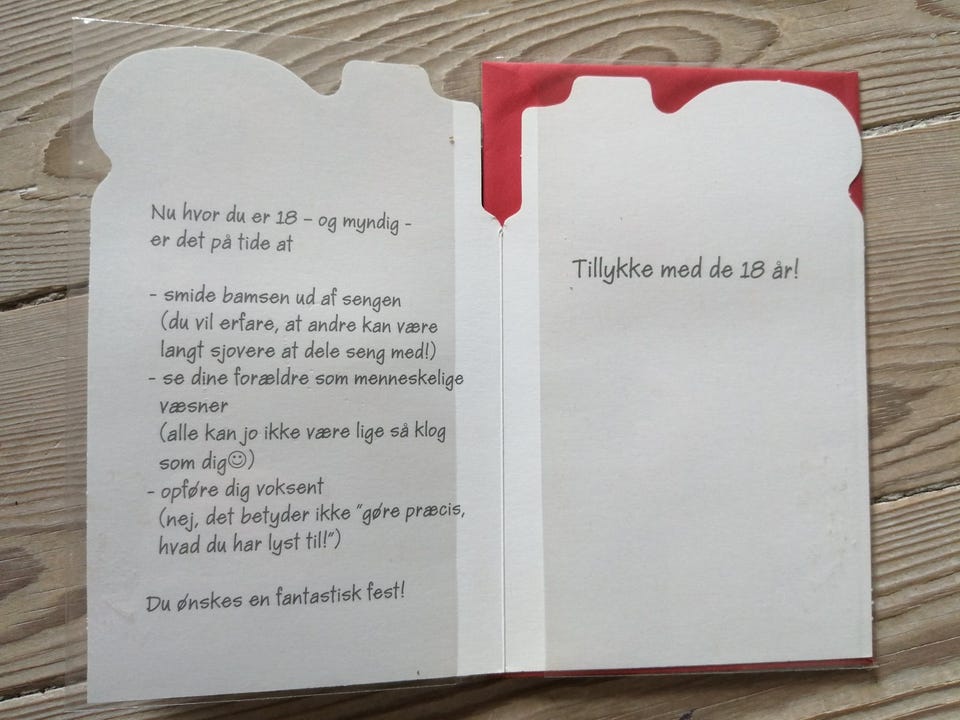 Nu hvor du er 18 – og myndig -
er det på tide at
- smide bamsen ud af sengen
(du vil erfare, at andre kan være
langt sjovere at dele seng med!)
- se dine forældre som menneskelige
væsner
(alle kan jo ikke være lige så klog
som dig☺)
- opføre dig voksent
(nej, det betyder ikke "gøre præcis,
hvad du har lyst til!")
Du ønskes en fantastisk fest!
Tillykke med de 18 år!